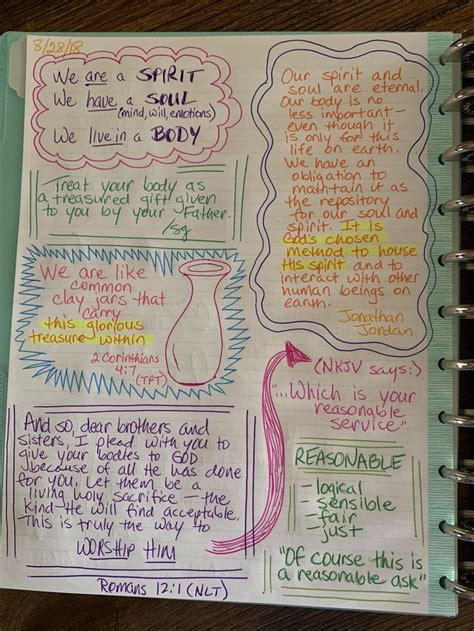 8/28/18
We are a SPIRIT
We have a SOUL
(mind, will, emotions)
We live in a BODY
Treat your body as
a treasured gift given
to you by your Father.
/sg
We are like
common
clay jars that
carry
this glorious
treasure within
2 Corinthians
4:7
(TPT)
And so, dear brothers and
sisters, I plead with you to
give your bodies to GOD
because of all He has done
for you. Let them be a
living holy sacrifice — the
kind He will find acceptable.
This is truly the way to
WORSHIP HIM
Romans 12:1 (NLT)
Our spirit and
soul are eternal.
Our body is no
less important —
even though it
is only for this
life on earth.
We have an
obligation to
maintain it as
the repository
for our soul and
spirit. It is
God's chosen
method to house
His spirit and to
interact with other
human beings on
earth.
Jonathan
Jordan
(NKJV says:)
"...Which is your
reasonable
service"
REASONABLE
- logical
- sensible
- fair
- just
"Of course this is
a reasonable ask"